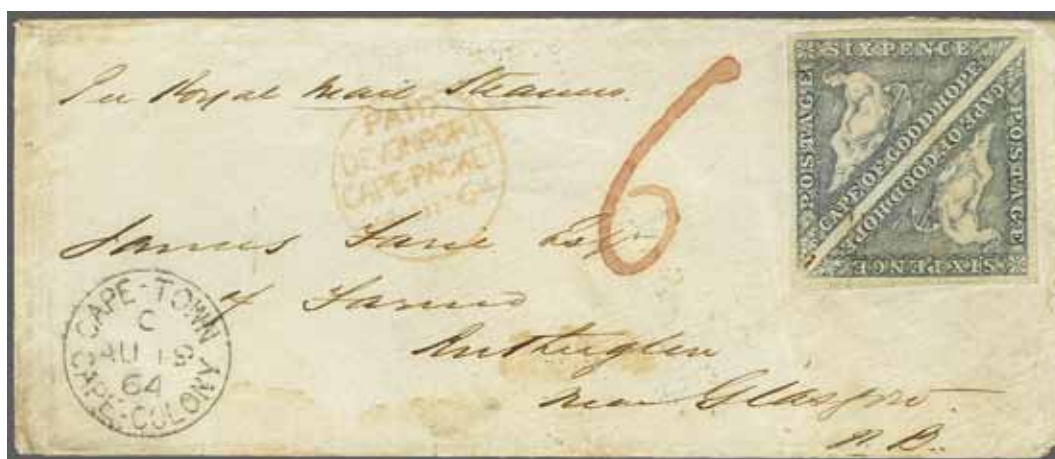 Per Royal Mail Steamer.
PAID
DEVONPORT
CAPE-PACKET
6
SIXPENCE
POSTAGE
CAPE OF GOOD HOPE
CAPE OF GOOD HOPE
POSTAGE
SIXPENCE
James Farie Esqr
of Farme
Rutherglen
near Glasgow.
N.B.
CAPE-TOWN
C
AU 18
64
CAPE-COLONY